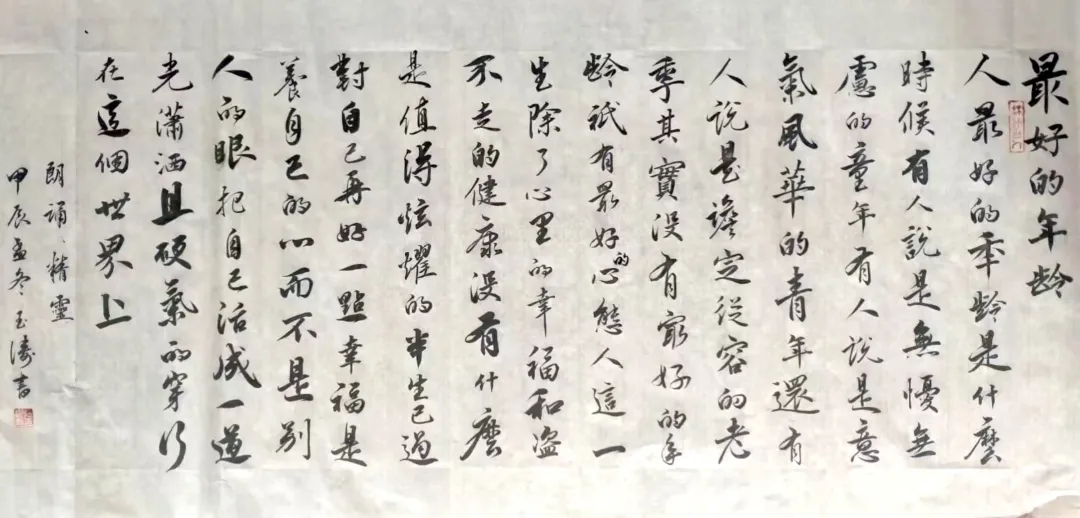 最好的年齡
人最好的年齡是什麼
時候有人說是無憂無
慮的童年有人說是意
氣風華的青年還有
人說是澹定從容的老
年其實沒有最好的年
齡祇有最好的心態人這一
生除了心里的幸福和盗
不走的健康沒有什麼
是值得炫耀的半生已過
對自己再好一點幸福是
養自己的心而不是别
人的眼把自己活成一道
光瀟洒且硬氣的穿行
在這個世界上
朗誦、精靈
甲辰孟冬玉濤書